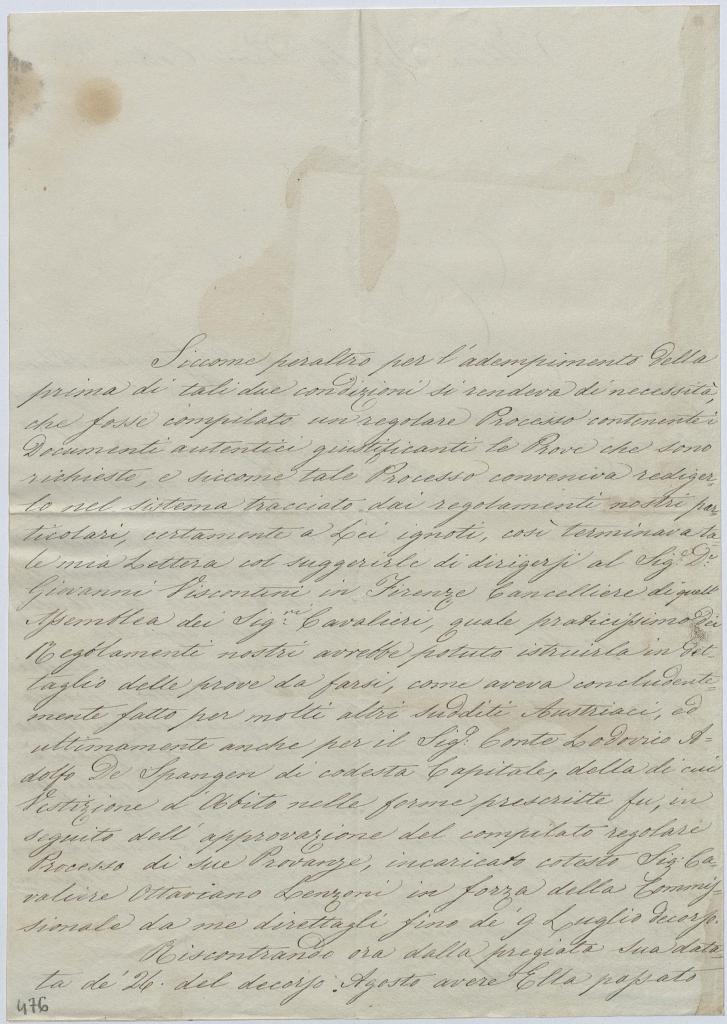 Siccome peraltro per l'adempimento della
prima di tali due condizioni si rendeva di necessità,
che fosse compilato un regolare Processo contenente i
Documenti autentici giustificanti le Prove che sono
richieste, e siccome tale Processo conveniva rediger-
lo nel sistema tracciato dai regolamenti nostri par-
ticolari, certamente a Lei ignoti, così terminava ta
le mia Lettera col suggerirle di dirigersi al Sig.e D.r
Giovanni Viscontini in Firenze Cancelliere di quell'
Assemblea dei Sig.ri Cavalieri, quale praticissimo dei
Regolamenti nostri avrebbe potuto istruirla in det-
taglio delle prove da farsi, come aveva concludente-
mente fatto per molti altri sudditi Austriaci, ed
ultimamente anche per il Sig.e Conte Lodovico A-
dolfo De Spangen di codesta Capitale, della di cui
Vestizione d'Abito nelle forme prescritte fu, in
seguito dell'approvazione del compilato regolare
Processo di sue Provanze, incaricato cotesto Sig. Ca-
valiere Ottaviano Lenzoni in forza della Commis-
sionale da me direttagli fino de' 9 Luglio decorso.
Riscontrando ora dalla pregiata sua data-
ta de' 26. del decorso Agosto avere Ella passato
476